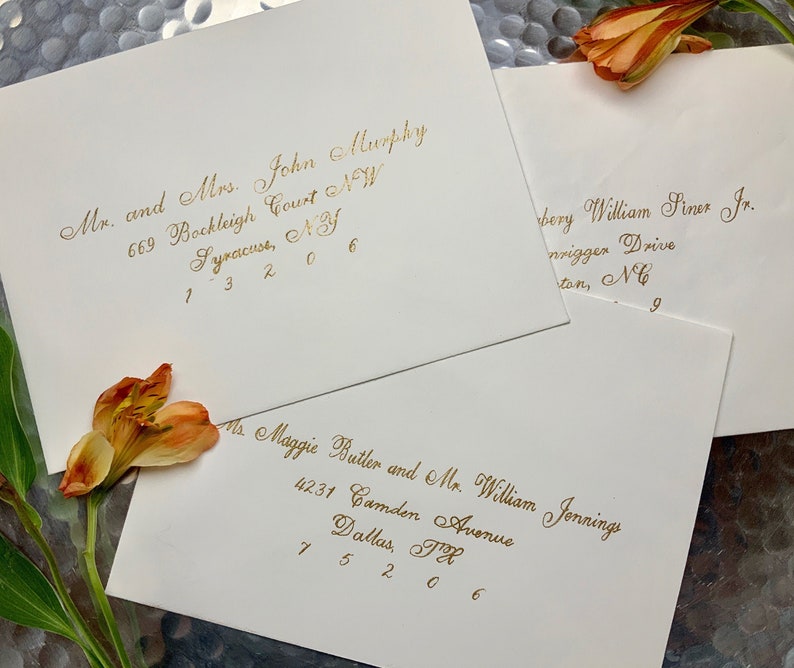 Mr. and Mrs. John Murphy
669 Bockleigh Court NW
Syracuse, NY
1 3 2 0 6
bery William Siner Jr.
nrigger Drive
ton, NC
9
Ms. Maggie Butler and Mr. William Jennings
4231 Camden Avenue
Dallas, TX
7 5 2 0 6